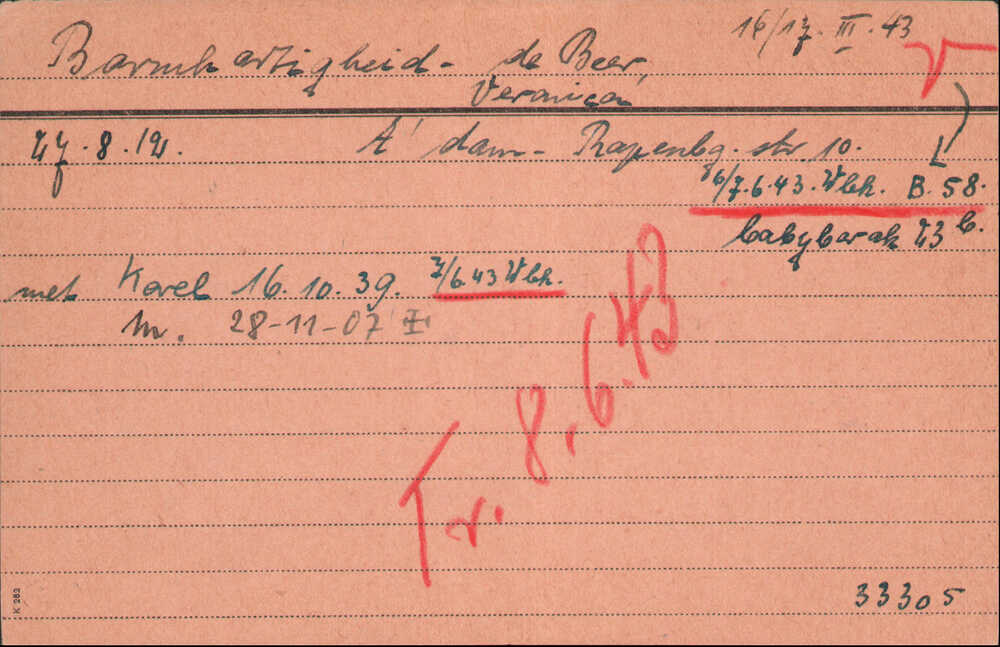 16/17. III. 43
Baruch artigheid - de Beer,
Veronica
27.8.12. A'dam - Rapenbg. str 10.
6/7.6.43. Wbk. B. 58.
babybarak 23 b.
met Karel 16.10.39. 7/6 43 Wbk.
M. 28-11-07 III
Tr. 8.6.43
33305
K 282